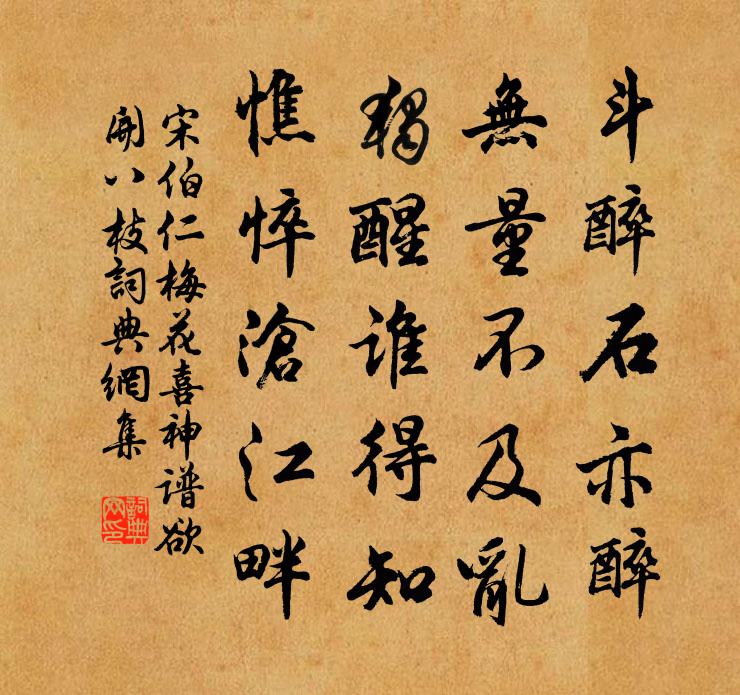 斗醉石亦醉
無量不及亂
獨醒谁得知
憔悴滄江畔
宋伯仁梅花喜神谱欲
開八枝詞典網集
詞典
网印